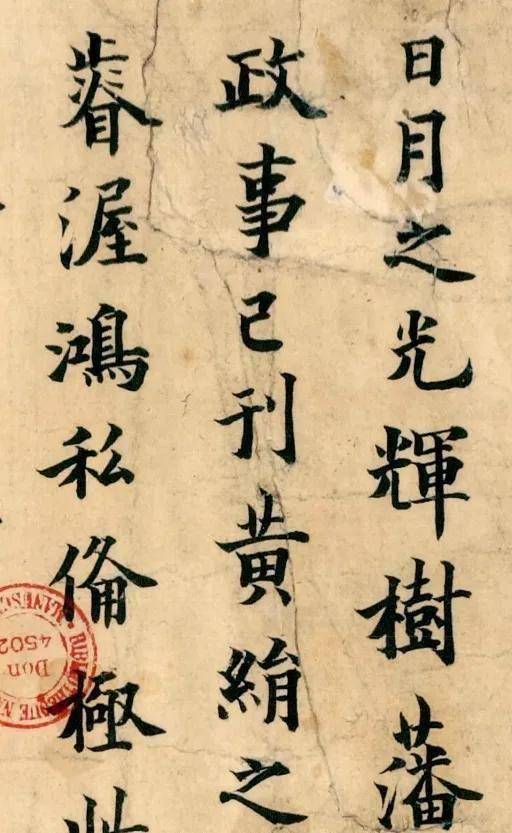 日月之光輝樹藩
政事已刊黄絹之
睿渥鴻私偹極
Don
4502